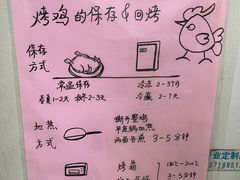 烤鸡的保存&回烤
保存
方式
常温保存
冷冻 2-3个月
春夏1-2天 秋冬2-3天
冷藏 2-7天
加热
方式
撕手整鸡
平底锅加热
两面各煎 3-5分钟
烤箱
180℃-200℃
3-5分钟
业定制